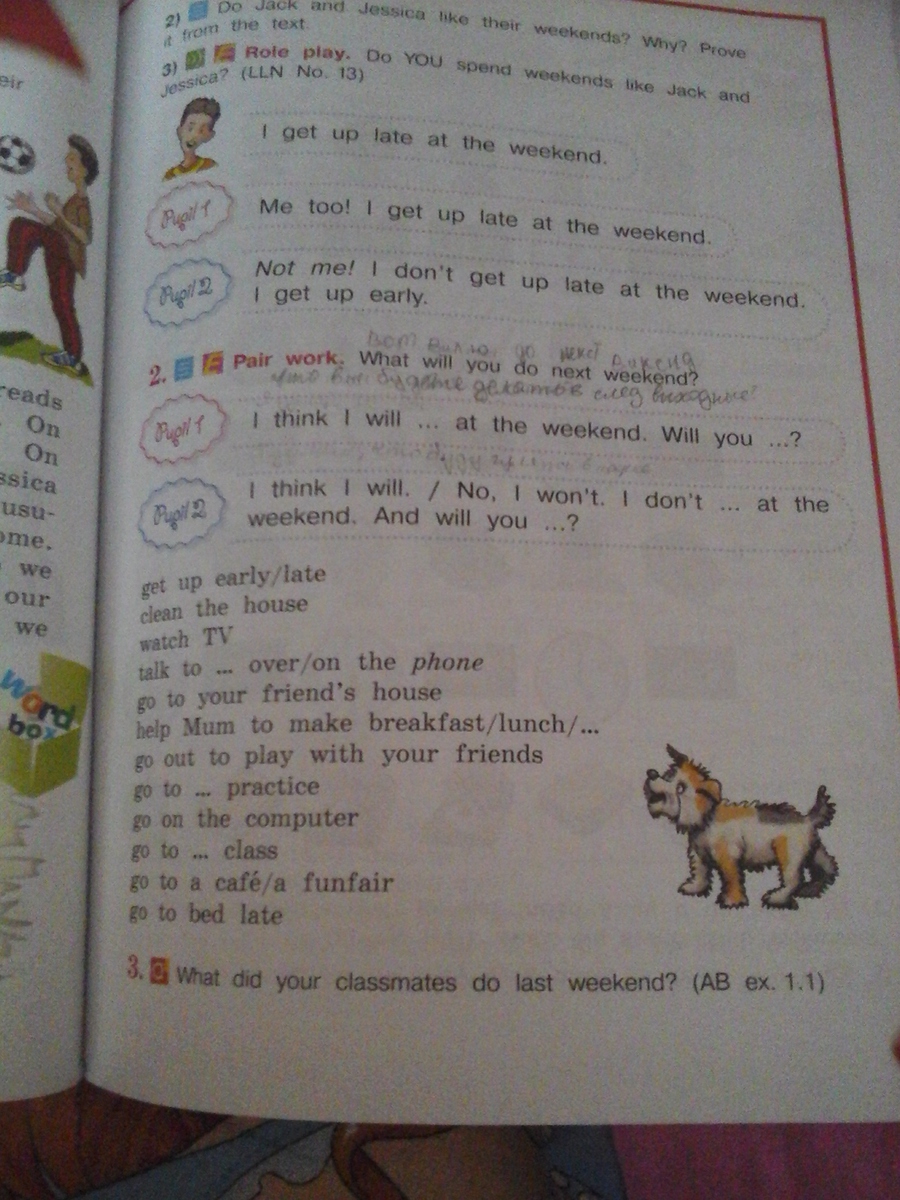 eir
reads
On
On
ssica
usu-
ome.
we
our
we
word
box
2) Do Jack and Jessica like their weekends? Why? Prove
it from the text.
3) Role play. Do YOU spend weekends like Jack and
Jessica? (LLN No. 13)
I get up late at the weekend.
Pupil 1
Me too! I get up late at the weekend.
Pupil 2
Not me! I don't get up late at the weekend.
I get up early.
2. Pair work. What will you do next weekend?
Pupil 1
I think I will ... at the weekend. Will you ...?
Pupil 2
I think I will. / No, I won't. I don't ... at the
weekend. And will you ...?
get up early/late
clean the house
watch TV
talk to ... over/on the phone
go to your friend's house
help Mum to make breakfast/lunch/...
go out to play with your friends
go to ... practice
go on the computer
go to ... class
go to a café/a funfair
go to bed late
3. What did your classmates do last weekend? (AB ex. 1.1)